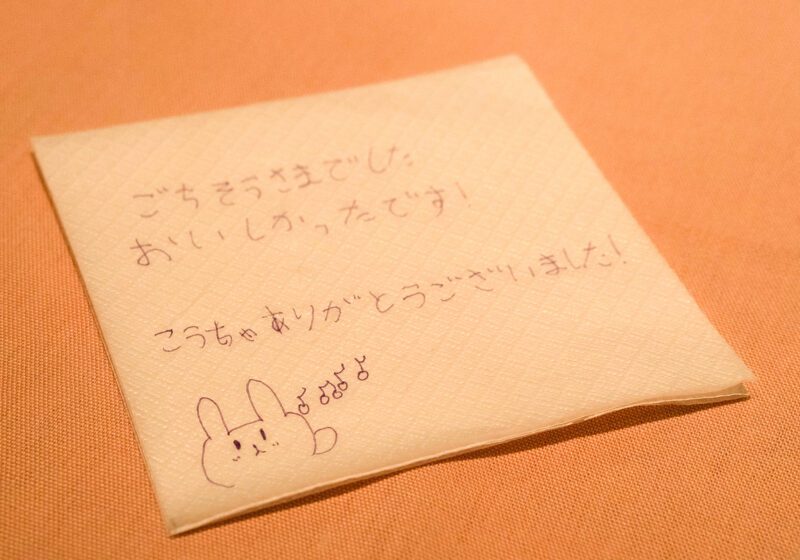 ごちそうさまでした
おいしかったです!
こうちゃありがとうございました!